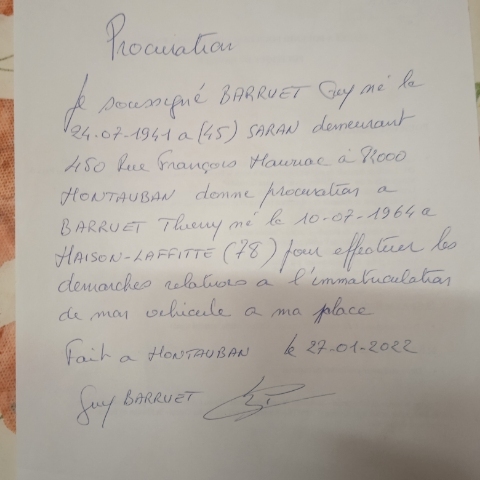 Procuration
Je soussigné BARRUET Guy né le
24-07-1941 a (45) SARAN demeurant
450 Rue François Mauriac à 82000
MONTAUBAN donne procuration a
BARRUET Thierry né le 10-07-1964 a
MAISON-LAFFITTE (78) pour effectuer les
demarches relatives a l'immatriculation
de mon vehicule a ma place
Fait a MONTAUBAN le 27-01-2022
Guy BARRUET